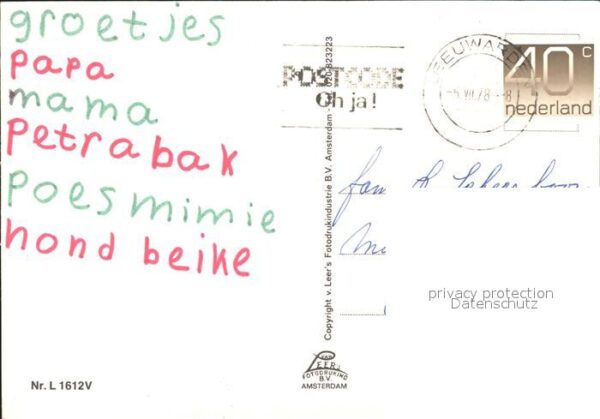 groetjes
papa
mama
petra bak
poes mimie
hond beike
Nr. L 1612V
Copyright v. Leer's Fotodrukindustrie B.V. Amsterdam - 020-823223
VAN
LEER's
FOTODRUKIND
B.V.
AMSTERDAM
POSTCODE
Oh ja!
LEEUWARDEN
-5.VII.78.-8
40 c
nederland
fam
privacy protection
Datenschutz